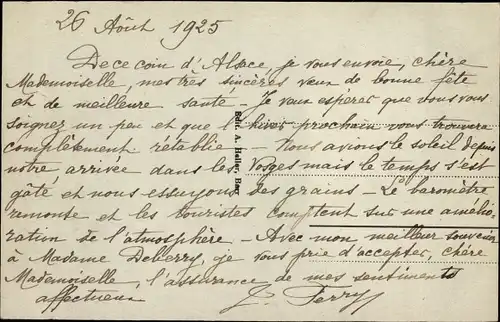 26 Août 1925
De ce coin d'Alsace, je vous envoie, chère
Mademoiselle, mes très sincères vœux de bonne fête
et de meilleure santé - Je veux espérer que vous vous
soignez un peu et que l'hiver prochain vous trouvera
complètement rétablie - Nous avions le soleil depuis
notre arrivée dans les Vosges mais le temps s'est
gâté et nous essuyons des grains - Le baromètre
remonte et les touristes comptent sur une amélio
ration de l'atmosphère - Avec mon meilleur souvenir
à Madame Deberry, je vous prie d'accepter, chère
Mademoiselle, l'assurance de mes sentiments
affectueux
J. Ferry
Edit. A. Haller, Bar